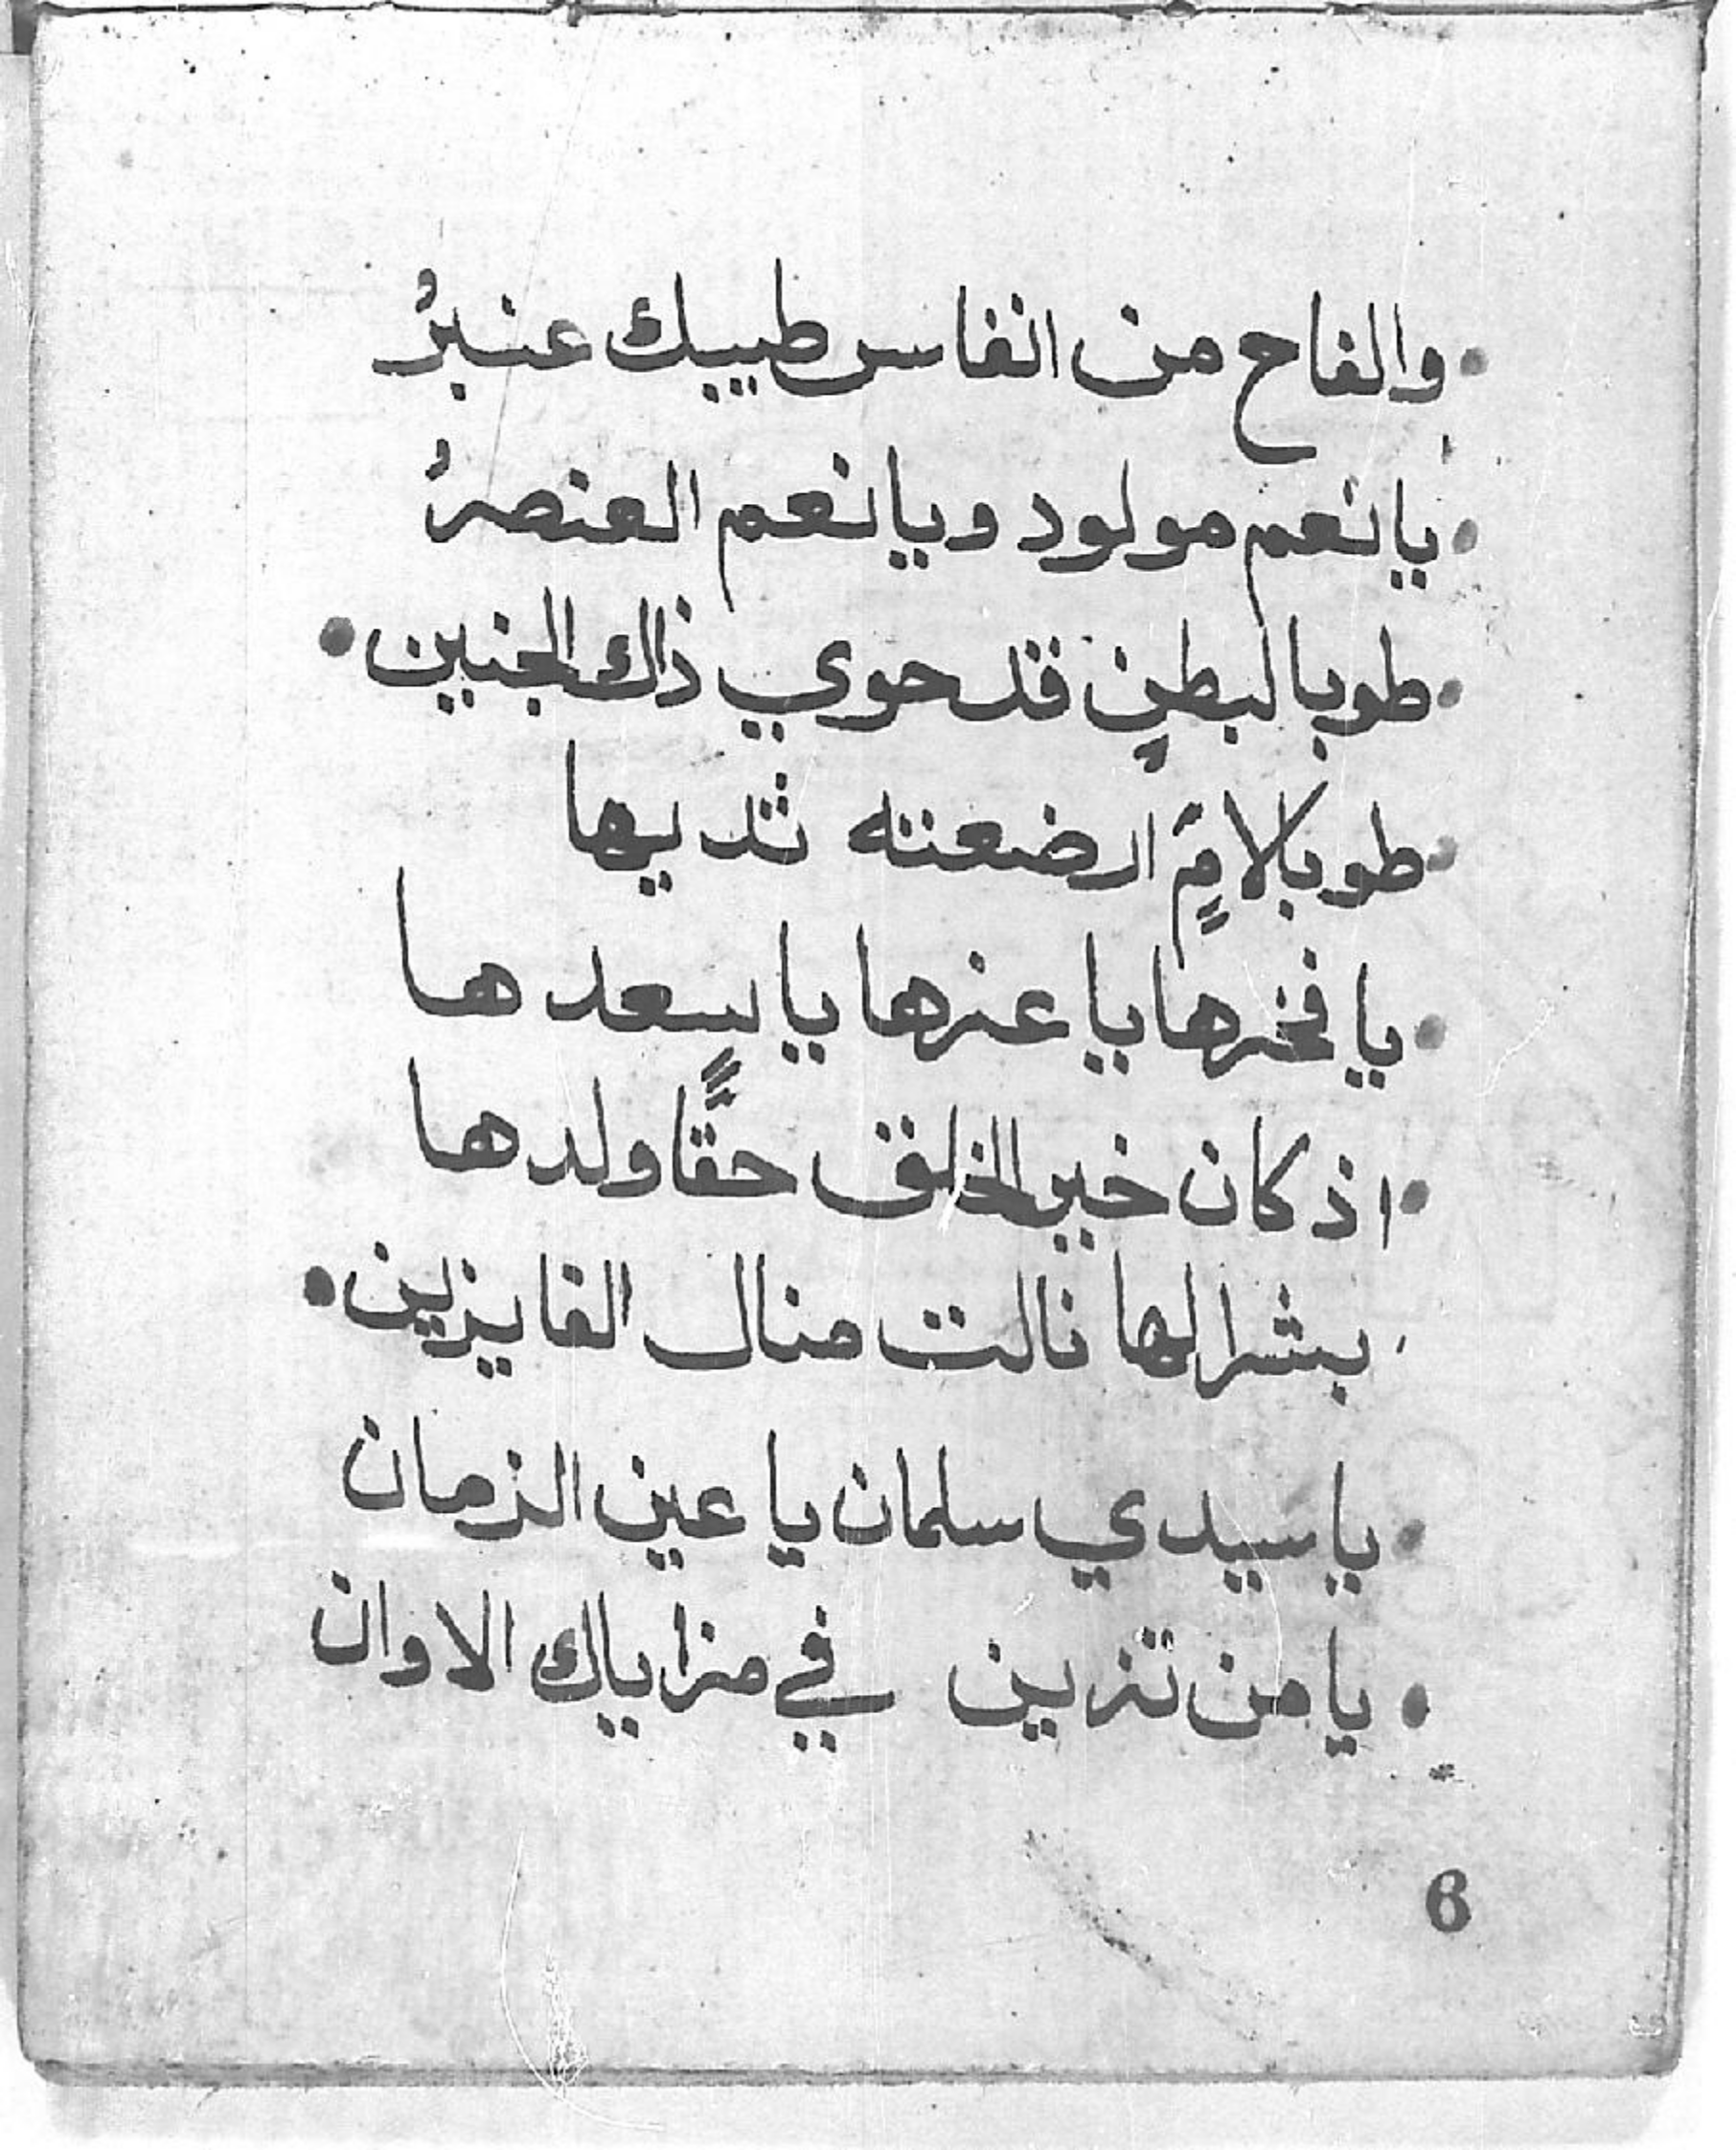 • والفاح من انفاس طيبك عنبرُ
• يا نعم مولود ويا نعم العنصرُ
• طوبا لبطنٍ قد حوي ذاك الجنين •
• طوبلامٍّ ارضعته ثديها
• يا فخرها يا عزها يا سعدها
• اذ كان خير الخلق حقًا ولدها
• بشرا لها نالت منال الفايزين •
• يا سيدي سلمان يا عين الزمان
• يا من تزين في مزاياك الاوان
6